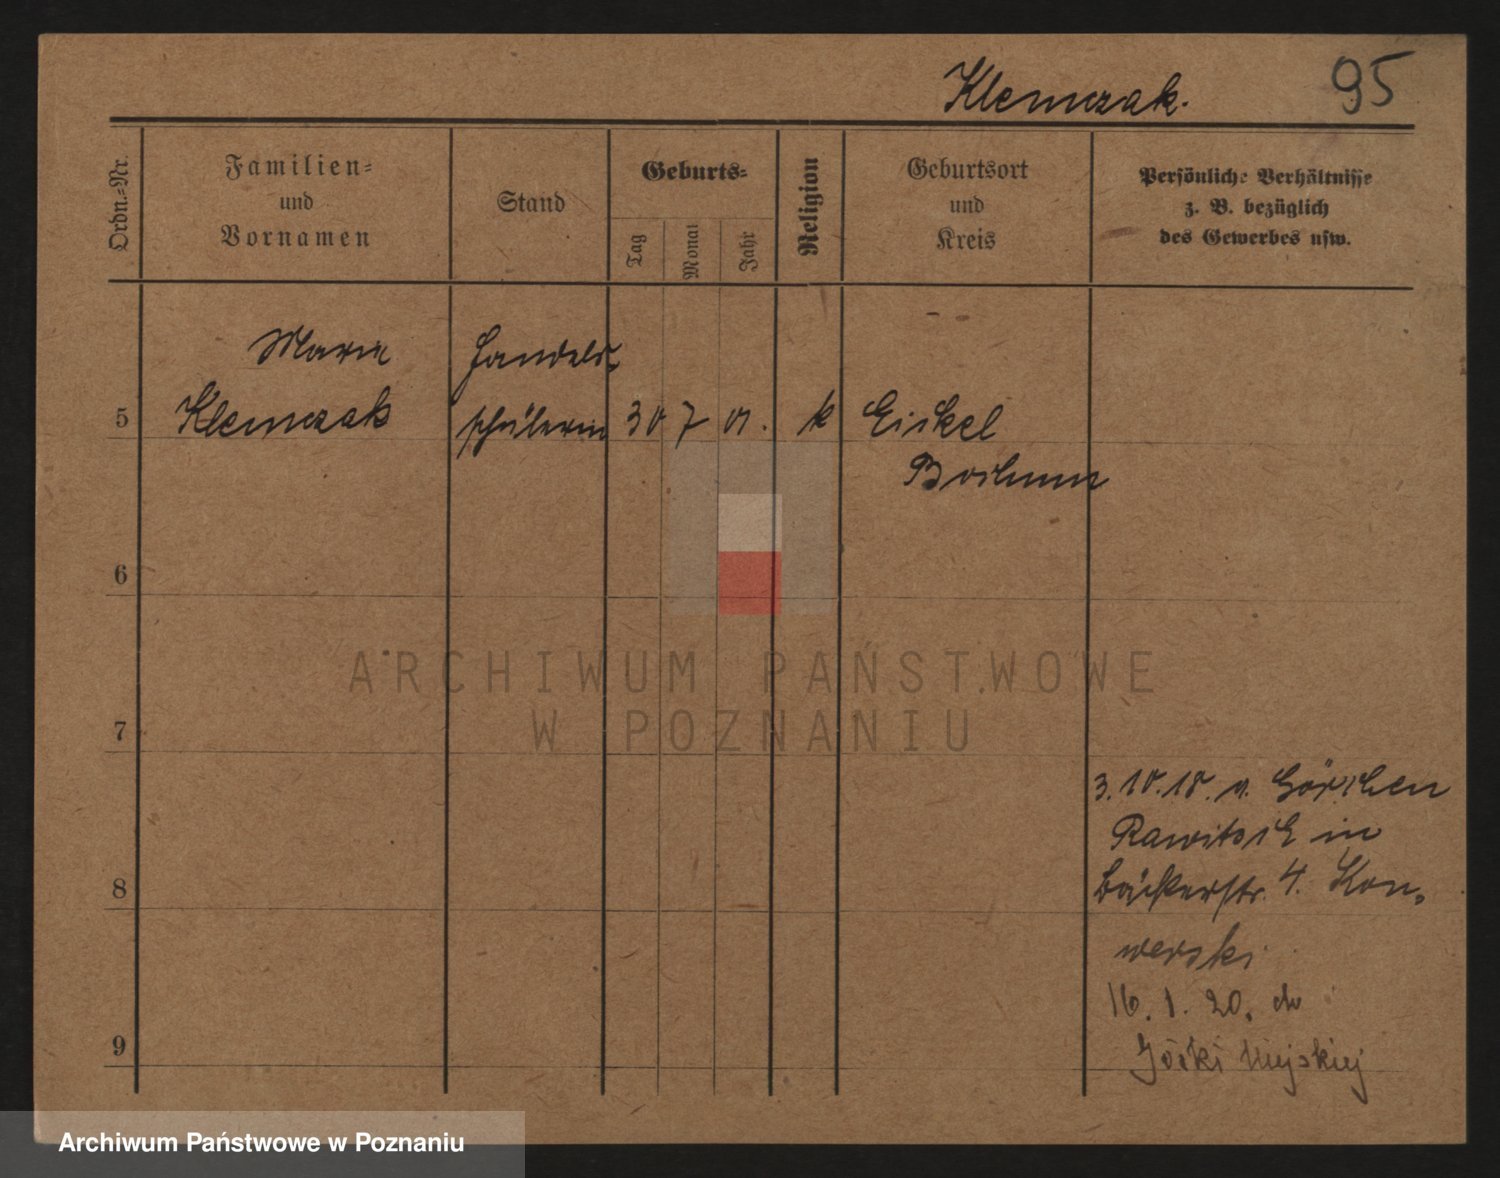 Klemczak.
95
Ordn.-Nr.
Familien-
und
Vornamen
Stand
Geburts-
Tag
Monat
Jahr
Religion
Geburtsort
und
Kreis
Persönliche Verhältnisse
z. B. bezüglich
des Gewerbes usw.
Maria
Handels-
5
Klemczak
schülerin
30 7 01.
k
Eickel
Bochum
6
ARCHIWUM PAŃSTWOWE
W POZNANIU
7
3.10.18. v. Görchen
Rawitsch in
8
Bäckerstr. 4. Kon-
werski
16. 1. 20. do
9
Górki Miejskiej
Archiwum Państwowe w Poznaniu